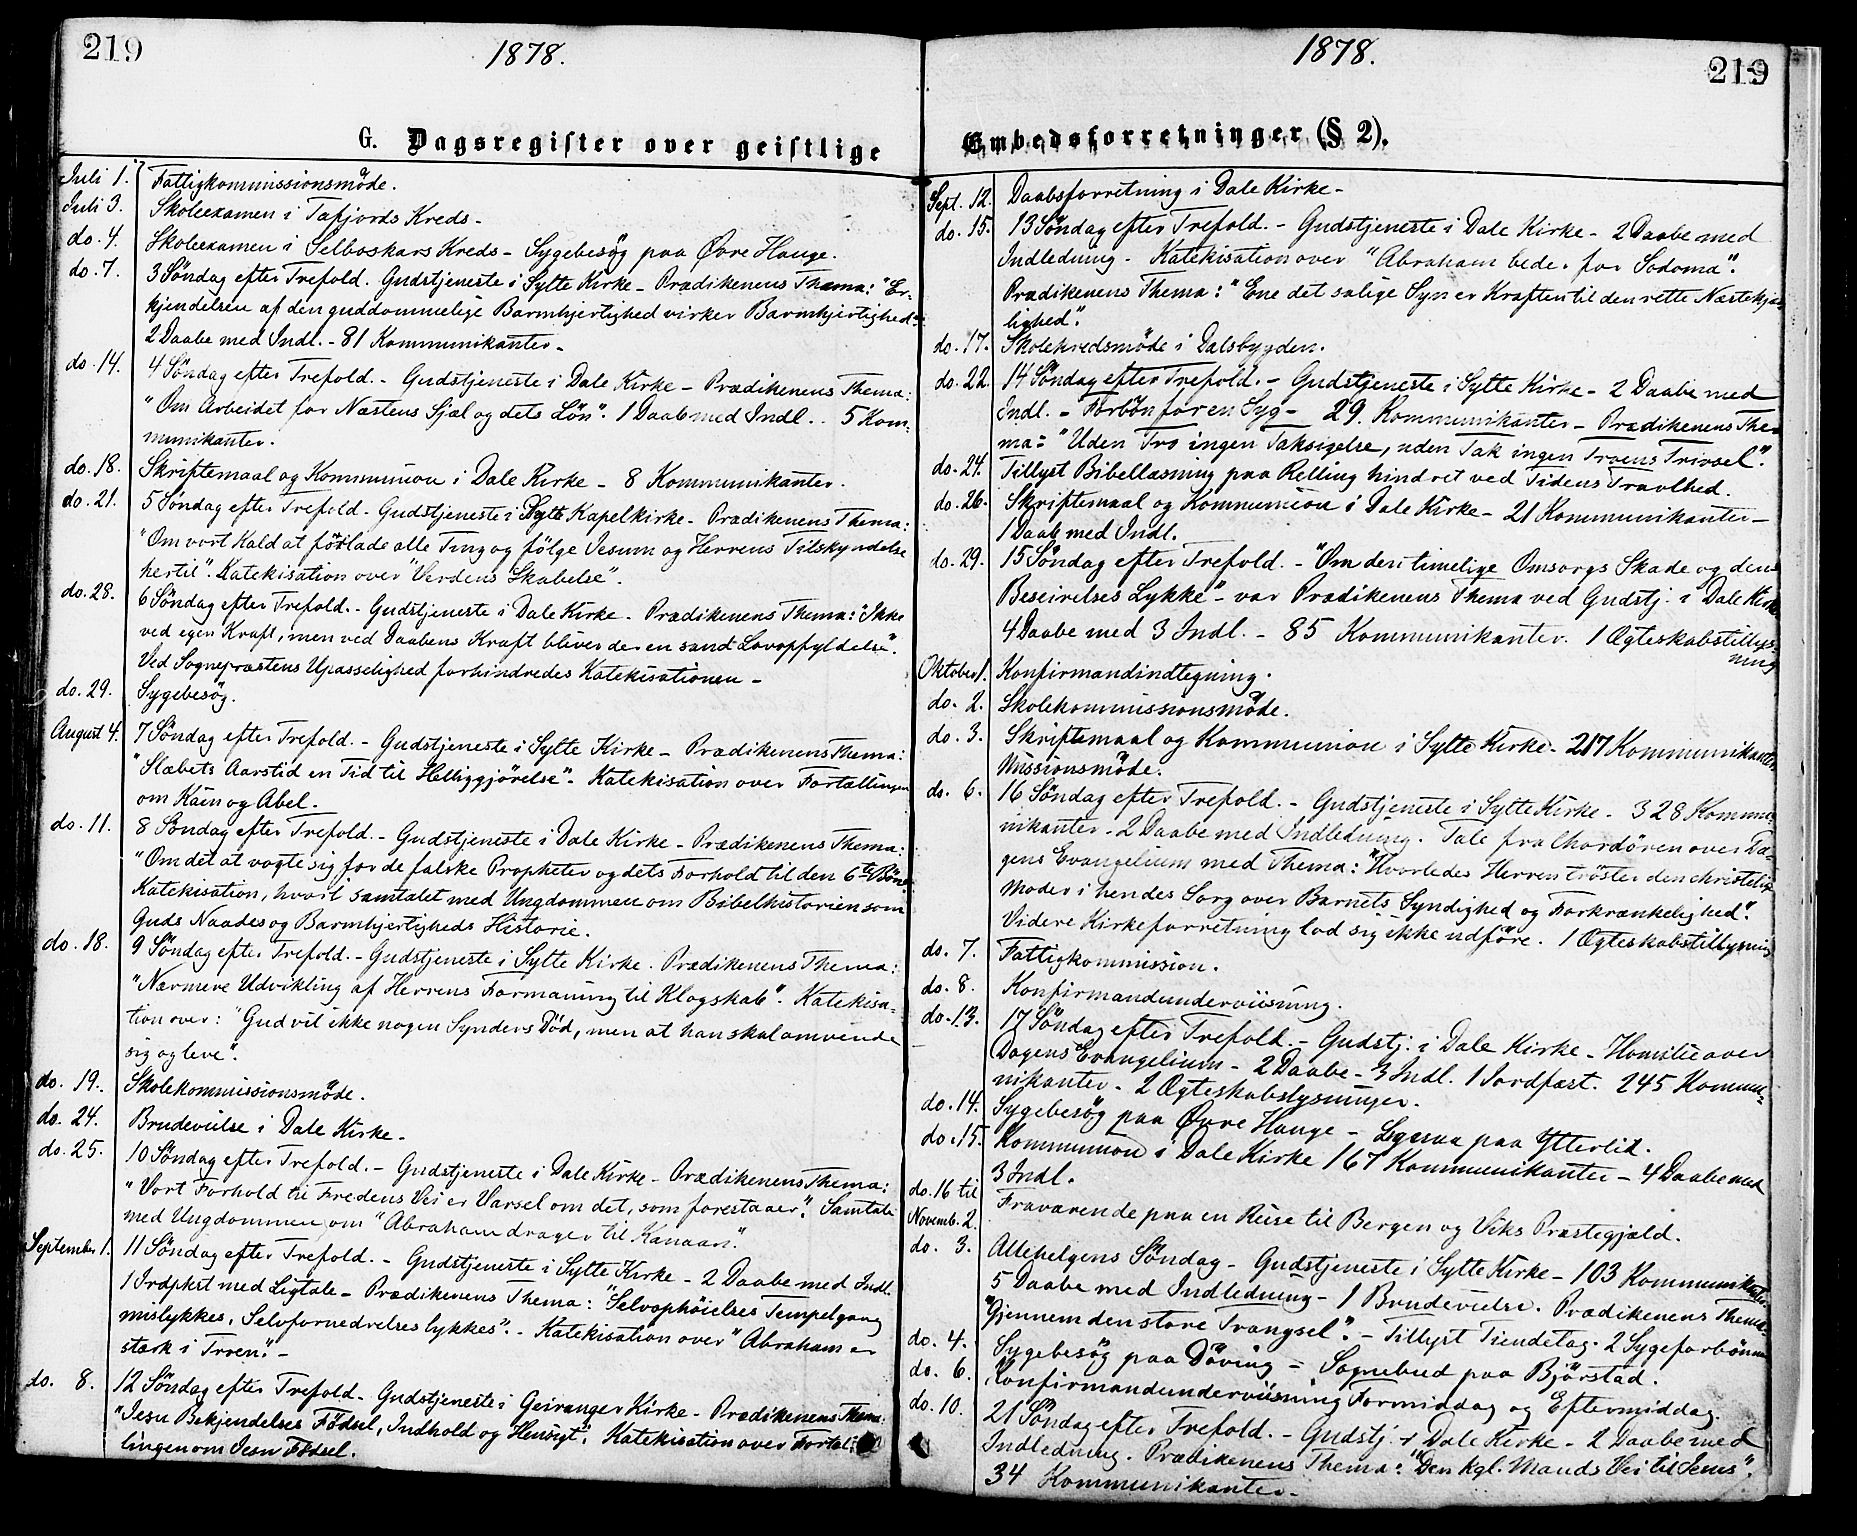 219
1878.
G. Dagsregister over geistlige
Juli 1. Fattigkommissionsmöde.
Juli 3. Skoleexamen i Tafjords Kreds -
do. 4. Skoleexamen i Selboskars Kreds - Sygebesög paa Övre Hauge.
do. 7. 3 Söndag efter Trefold. Gudstjeneste i Sylte Kirke - Prædikenens Thema: "Er-
kjendelsen af den guddommelige Barmhjertighed virker Barmhjertighed"
2 Daabe med Indl. - 81 Kommunikanter -
do. 14. 4 Söndag efter Trefold. - Gudstjeneste i Dale Kirke - Prædikenens Thema:
"Om Arbeidet for Næstens Sjæl og dets Lön". 1 Daab med Indl. . 5 Kom-
munikanter.
do. 18. Skriftemaal og Kommunion i Dale Kirke - 8 Kommunikanter.
do. 21. 5 Söndag efter Trefold - Gudstjeneste i Sylte Kapelkirke - Prædikenens Thema:
"Om vort Kald at forlade alle Ting og fölge Jesum og Herrens Tilskyndelse
hertil". Katekisation over "Verdens Skabelse".
do. 28. 6 Söndag efter Trefold. - Gudstjeneste i Dale Kirke - Prædikenens Thema: "Ikke
ved egen Kraft, men ved Daabens Kraft bliver der en sand Lovopfyldelse".
Ved Sognepræstens Upasselighed forhindredes Katekisationen -
do. 29. Sygebesög.
August 4. 7 Söndag efter Trefold. - Gudstjeneste i Sylte Kirke - Prædikenens Thema:
"Slæbets Aarstid en Tid til Helliggjörelse" - Katekisation over Fortællingen
om Kain og Abel -
do. 11. 8 Söndag efter Trefold. - Gudstjeneste i Dale Kirke - Prædikenens Thema:
"Om det at vogte sig for de falske Propheter og dets Forhold til den 6te Bön"
Katekisation, hvori samtalet med Ungdommen om Bibelhistorien som
Guds Naades og Barmhjertigheds Historie.
do. 18. 9 Söndag efter Trefold. - Gudstjeneste i Sylte Kirke. Prædikenens Thema:
"Nærmere Udvikling af Herrens Formaning til Klogskab". Katekisa-
tion over: "Gud vil ikke nogen Synders Död, men at han skal omvende
sig og leve".
do. 19. Skolekommissionsmöde.
do. 24. Brudevielse i Dale Kirke -
do. 25. 10 Söndag efter Trefold. - Gudstjeneste i Dale Kirke - Prædikenens Thema:
"Vort Forhold til Fredens Vei er Varsel om det, som forestaaer". Samtale
med Ungdommen om "Abraham drager til Kanaan".
September 1. 11 Söndag efter Trefold. - Gudstjeneste i Sylte Kirke - 2 Daabe med Indl.
1 Jrdfkst med Ligtale - Prædikenens Thema: "Selvophöielses Tempelgang
mislykkes, Selvfornedrelses lykkes". - Katekisation over "Abraham er
stærk i Troen". -
do. 8. 12 Söndag efter Trefold - Gudstjeneste i Geiranger Kirke - Prædikenens Thema:
"Jesu Bekjendelses Födsel, Indhold og Hensigt". Katekisation over Fortæl-
lingen om Jesu Födsel.
1878.
219
Embedsforretninger (§ 2).
Sept. 12. Daabsforretning i Dale Kirke -
do. 15. 13 Söndag efter Trefold. - Gudstjeneste i Dale Kirke - 2 Daabe med
Indledning - Katekisation over "Abraham beder for Sodoma".
Prædikenens Thema: "Ene det salige Syn er Kraften til den rette Næstekjær-
lighed".
do. 17. Skolekredsmöde i Dalsbygden.
do. 22. 14 Söndag efter Trefold. - Gudstjeneste i Sylte Kirke - 2 Daabe med
Indl. - Forbön for en Syg - 29 Kommunikanter - Prædikenens The-
ma: "Uden Tro ingen Taksigelse, uden Tak ingen Troens Trivsel".
do. 24. Tillyst Bibellæsning paa Relling hindret ved Tidens Travlhed.
do. 26. Skriftemaal og Kommunion i Dale Kirke - 21 Kommunikanter -
1 Daab med Indl.
do. 29. 15 Söndag efter Trefold. - "Om den timelige Omsorgs Skade og dens
Beseirelses Lykke" - var Prædikenens Thema ved Gudstj. i Dale Kirke
4 Daabe med 3 Indl. - 85 Kommunikanter. 1 Ægteskabstillys-
ning
Oktober 1. Konfirmandindtegning.
do. 2. Skolekommissionsmöde.
do. 3. Skriftemaal og Kommunion i Sylte Kirke - 217 Kommunikanter
Missionsmöde.
do. 6. 16 Söndag efter Trefold. - Gudstjeneste i Sylte Kirke - 328 Kommu-
nikanter - 2 Daabe med Indledning. Tale fra Chordören over Da-
gens Evangelium med Thema: "Hvorledes Herren tröster den christelige
Moder i hendes Sorg over Barnets Syndighed og Forkrænkelighed".
Videre Kirkeforretning lod sig ikke udföre. 1 Ægteskabstillysning
do. 7. Fattigkommission.
do. 8. Konfirmandunderviisning.
do. 13. 17 Söndag efter Trefold. - Gudstj. i Dale Kirke - Homilie over
Dagens Evangelium - 2 Daabe - 3 Indl. 1 Jordfæst. 245 Kommu-
nikanter - 2 Ægteskabslysninger.
do. 14. Sygebesög paa Övre Hauge - paa Ytterlid.
do. 15. Kommunion i Dale Kirke 167 Kommunikanter - 4 Daabe med
3 Indl.
do. 16 til
Novemb. 2. Fraværende paa en Reise til Bergen og Viks Præstegjæld.
do. 3. Allehelgens Söndag - Gudstjeneste i Sylte Kirke - 103 Kommunikanter
5 Daabe med Indledning - 1 Brudevielse. Prædikenens Thema:
"Gjennem den store Trængsel". - Tillyst Tiendetag - 2 Sygeforbönner
do. 4. Sygebesög paa Döving - Sognebud paa Bjørstad.
do. 6. Konfirmandunderviisning Formiddag og Eftermiddag.
do. 10. 21 Söndag efter Trefold. - Gudstj. i Dale Kirke - 2 Daabe med
Indledning. Prædikenens Thema: "Den kgl. Mands Vei til Jesus".
34 Kommunikanter -